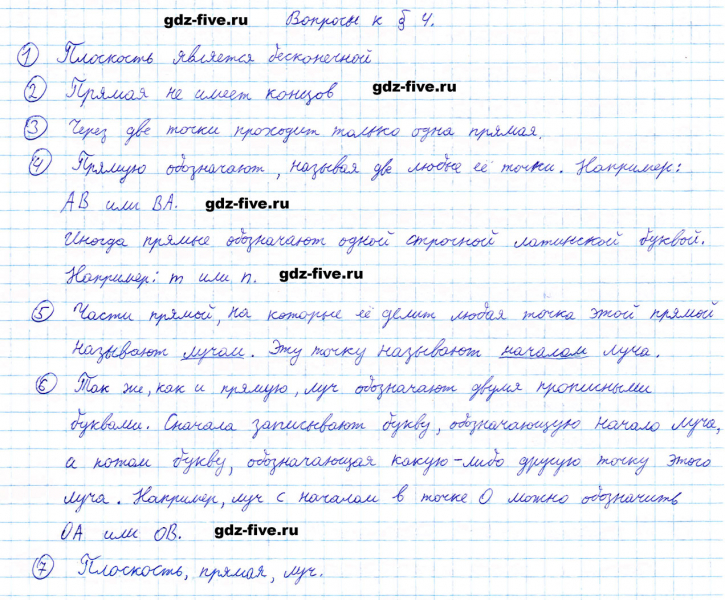 gdz-five.ru Вопросы к § 4.
1 Плоскость является бесконечной
2 Прямая не имеет концов gdz-five.ru
3 Через две точки проходит только одна прямая.
4 Прямую обозначают, называя две любые её точки. Например:
AB или BA. gdz-five.ru
Иногда прямые обозначают одной строчной латинской буквой.
Например: m или n. gdz-five.ru
5 Части прямой, на которые её делит любая точка этой прямой
называют лучом. Эту точку называют началом луча.
6 Так же, как и прямую, луч обозначают двумя прописными
буквами. Сначала записывают букву, обозначающую начало луча,
а потом букву, обозначающая какую-либо другую точку этого
луча. Например, луч с началом в точке O можно обозначить
OA или OB. gdz-five.ru
7 Плоскость, прямая, луч.